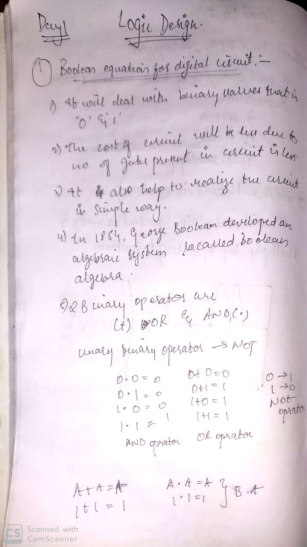 Day1 Logic Design.
1 Boolean equation for digital circuit:-
1) It will deal with binary values that is
'0' & '1'
2) The cost of circuit will be less due to
no of gates present in circuit is less
3) It also help to realize the circuit
in simple way.
4) In 1854, George Boolean developed an
algebraic system called boolean
algebra.
2 Binary operator are
(+) OR & AND(.)
unary binary operator → NOT
0.0=0 0+0=0 0→1
0.1=0 0+1=1 1→0
1.0=0 1+0=1 NOT
1.1=1 1+1=1 operator
AND operator OR operator
A+A=A A.A=A
1+1=1 1.1=1 } B.A
CS Scanned with
CamScanner